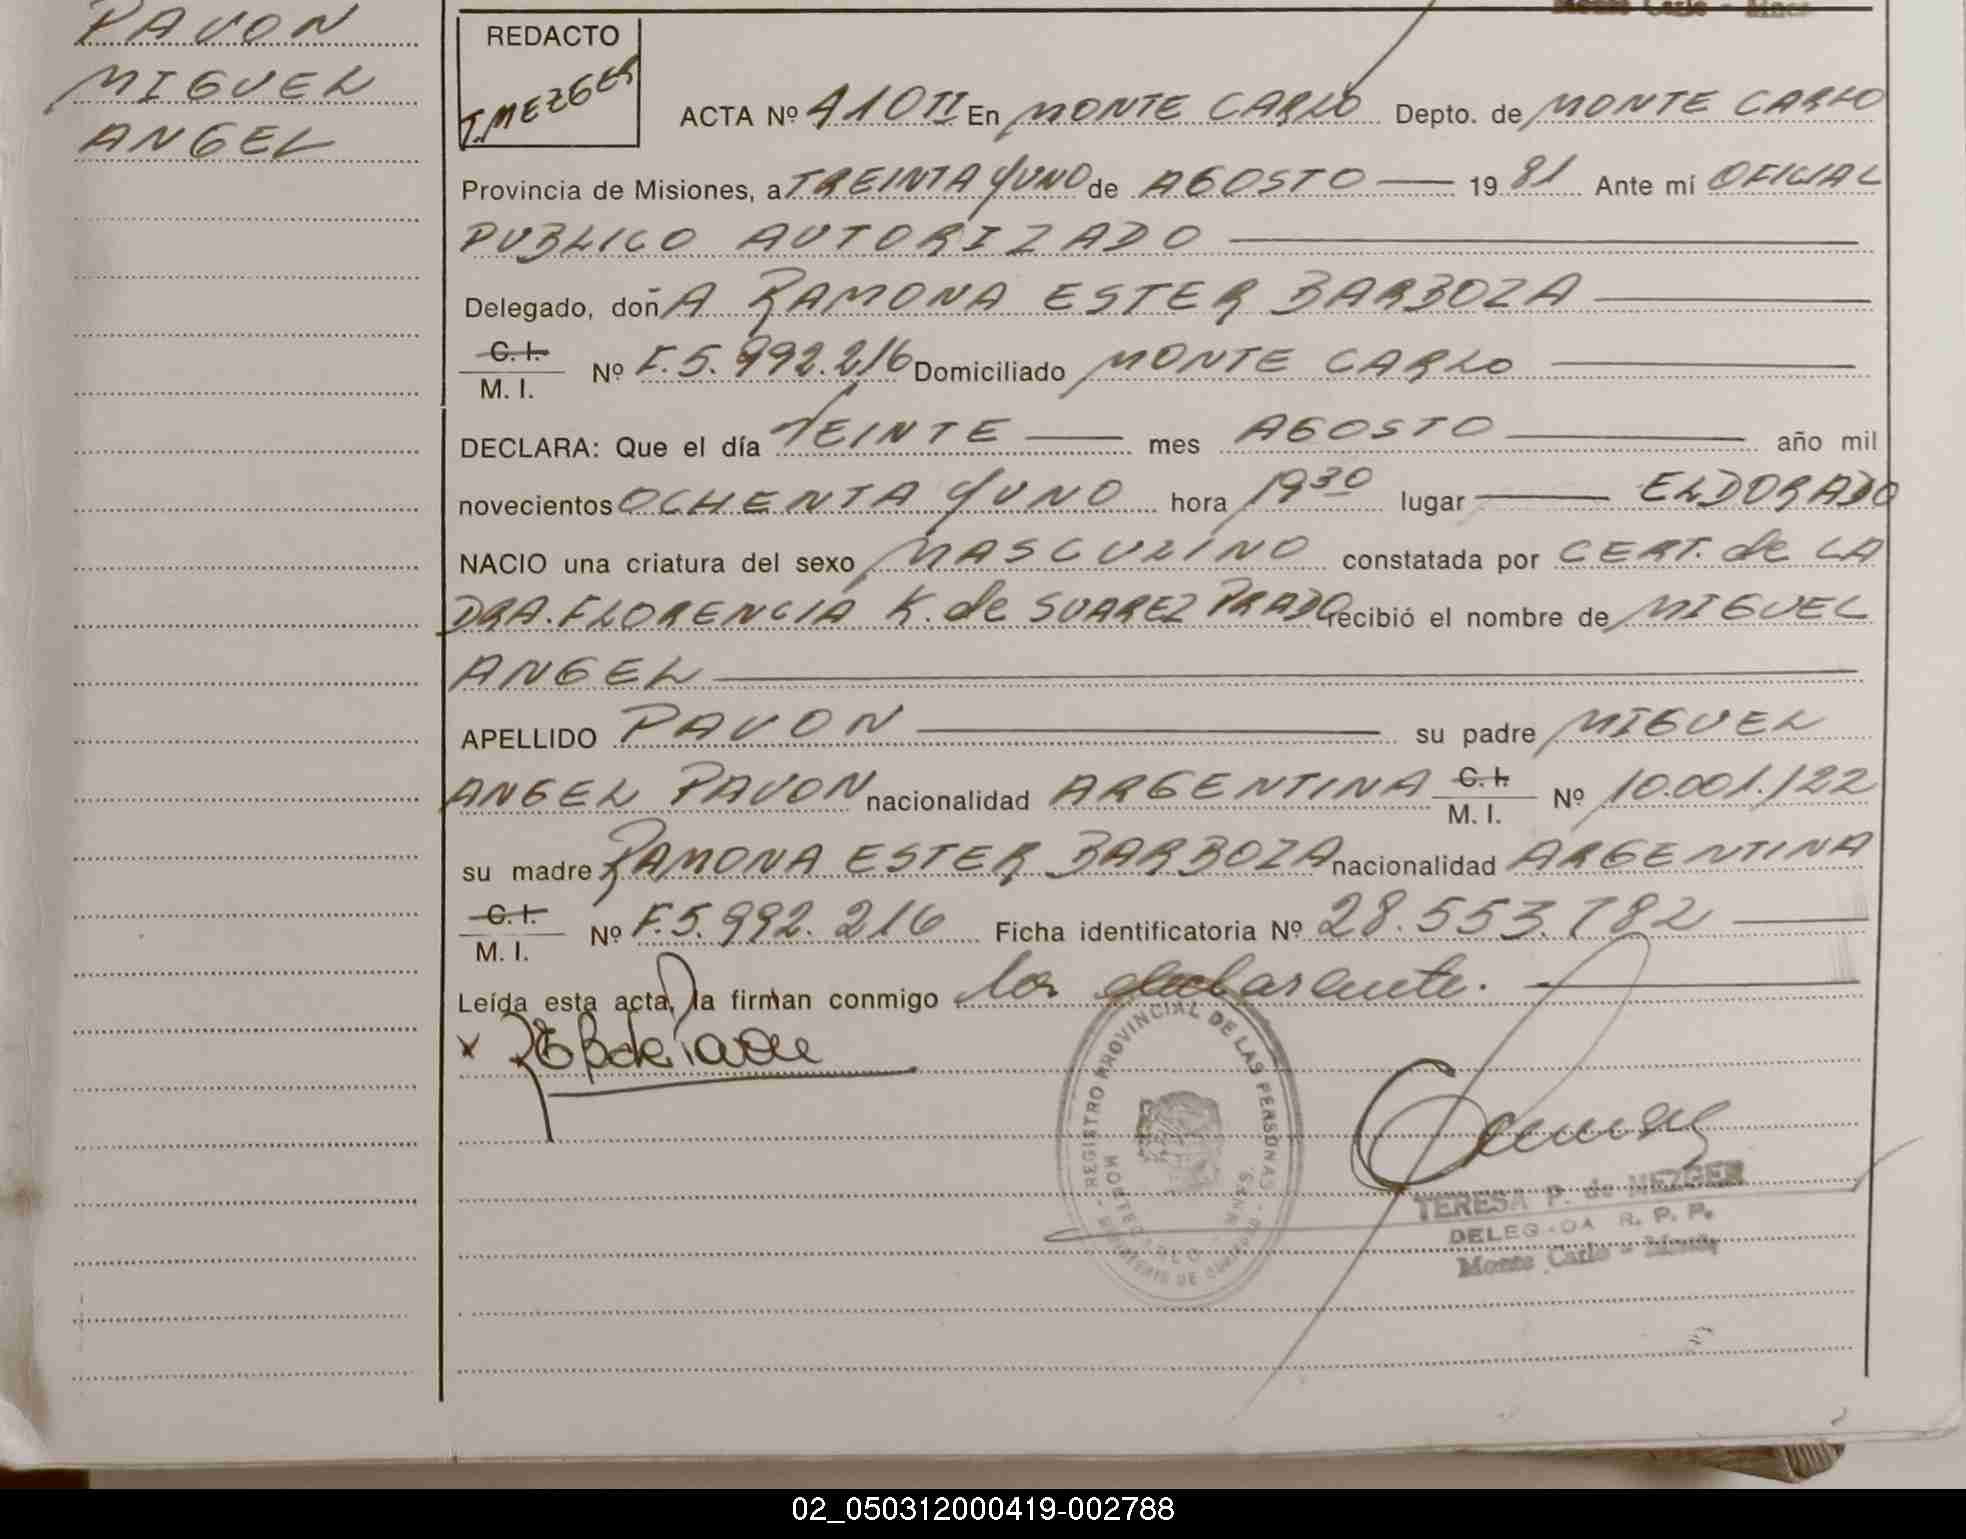 PAVON
MIGUEL
ANGEL
REDACTO
T. MEZGER
ACTA Nº 410 II En MONTE CARLO Depto. de MONTE CARLO
Provincia de Misiones, a TREINTA Y UNO de AGOSTO — 19 81 Ante mí OFICIAL
PUBLICO AUTORIZADO
Delegado, doñA RAMONA ESTER BARBOZA
C. I.
M. I. Nº F. 5.992.216 Domiciliado MONTE CARLO
DECLARA: Que el día VEINTE — mes AGOSTO — año mil
novecientos OCHENTA Y UNO hora 19 30 lugar — ELDORADO
NACIO una criatura del sexo MASCULINO constatada por CERT. de LA
DRA. FLORENCIA K. de SUAREZ PRADO recibió el nombre de MIGUEL
ANGEL
APELLIDO PAVON — su padre MIGUEL
ANGEL PAVON nacionalidad ARGENTINA C. I. M. I. Nº 10.001.122
su madre RAMONA ESTER BARBOZA nacionalidad ARGENTINA
C. I.
M. I. Nº F. 5.992.216 Ficha identificatoria Nº 28.553.782
Leída esta acta, la firman conmigo la declarante.
REGISTRO PROVINCIAL DE LAS PERSONAS
TERESA P. de MEZGER
DELEGADA R. P. P.
Monte Carlo - Mnes
02_050312000419-002788